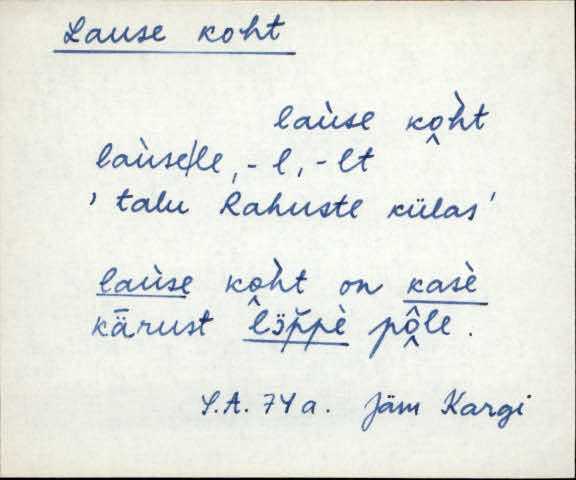 Lause koht
laùse ko̭h̀t
laùse/le, -l, -lt
' talu Rahuste külas'
laùse ko̭h̀t on kasè
kārust lɔ̈p̆pè pô̭le.
S.A. 74 a. Jäm Kargi